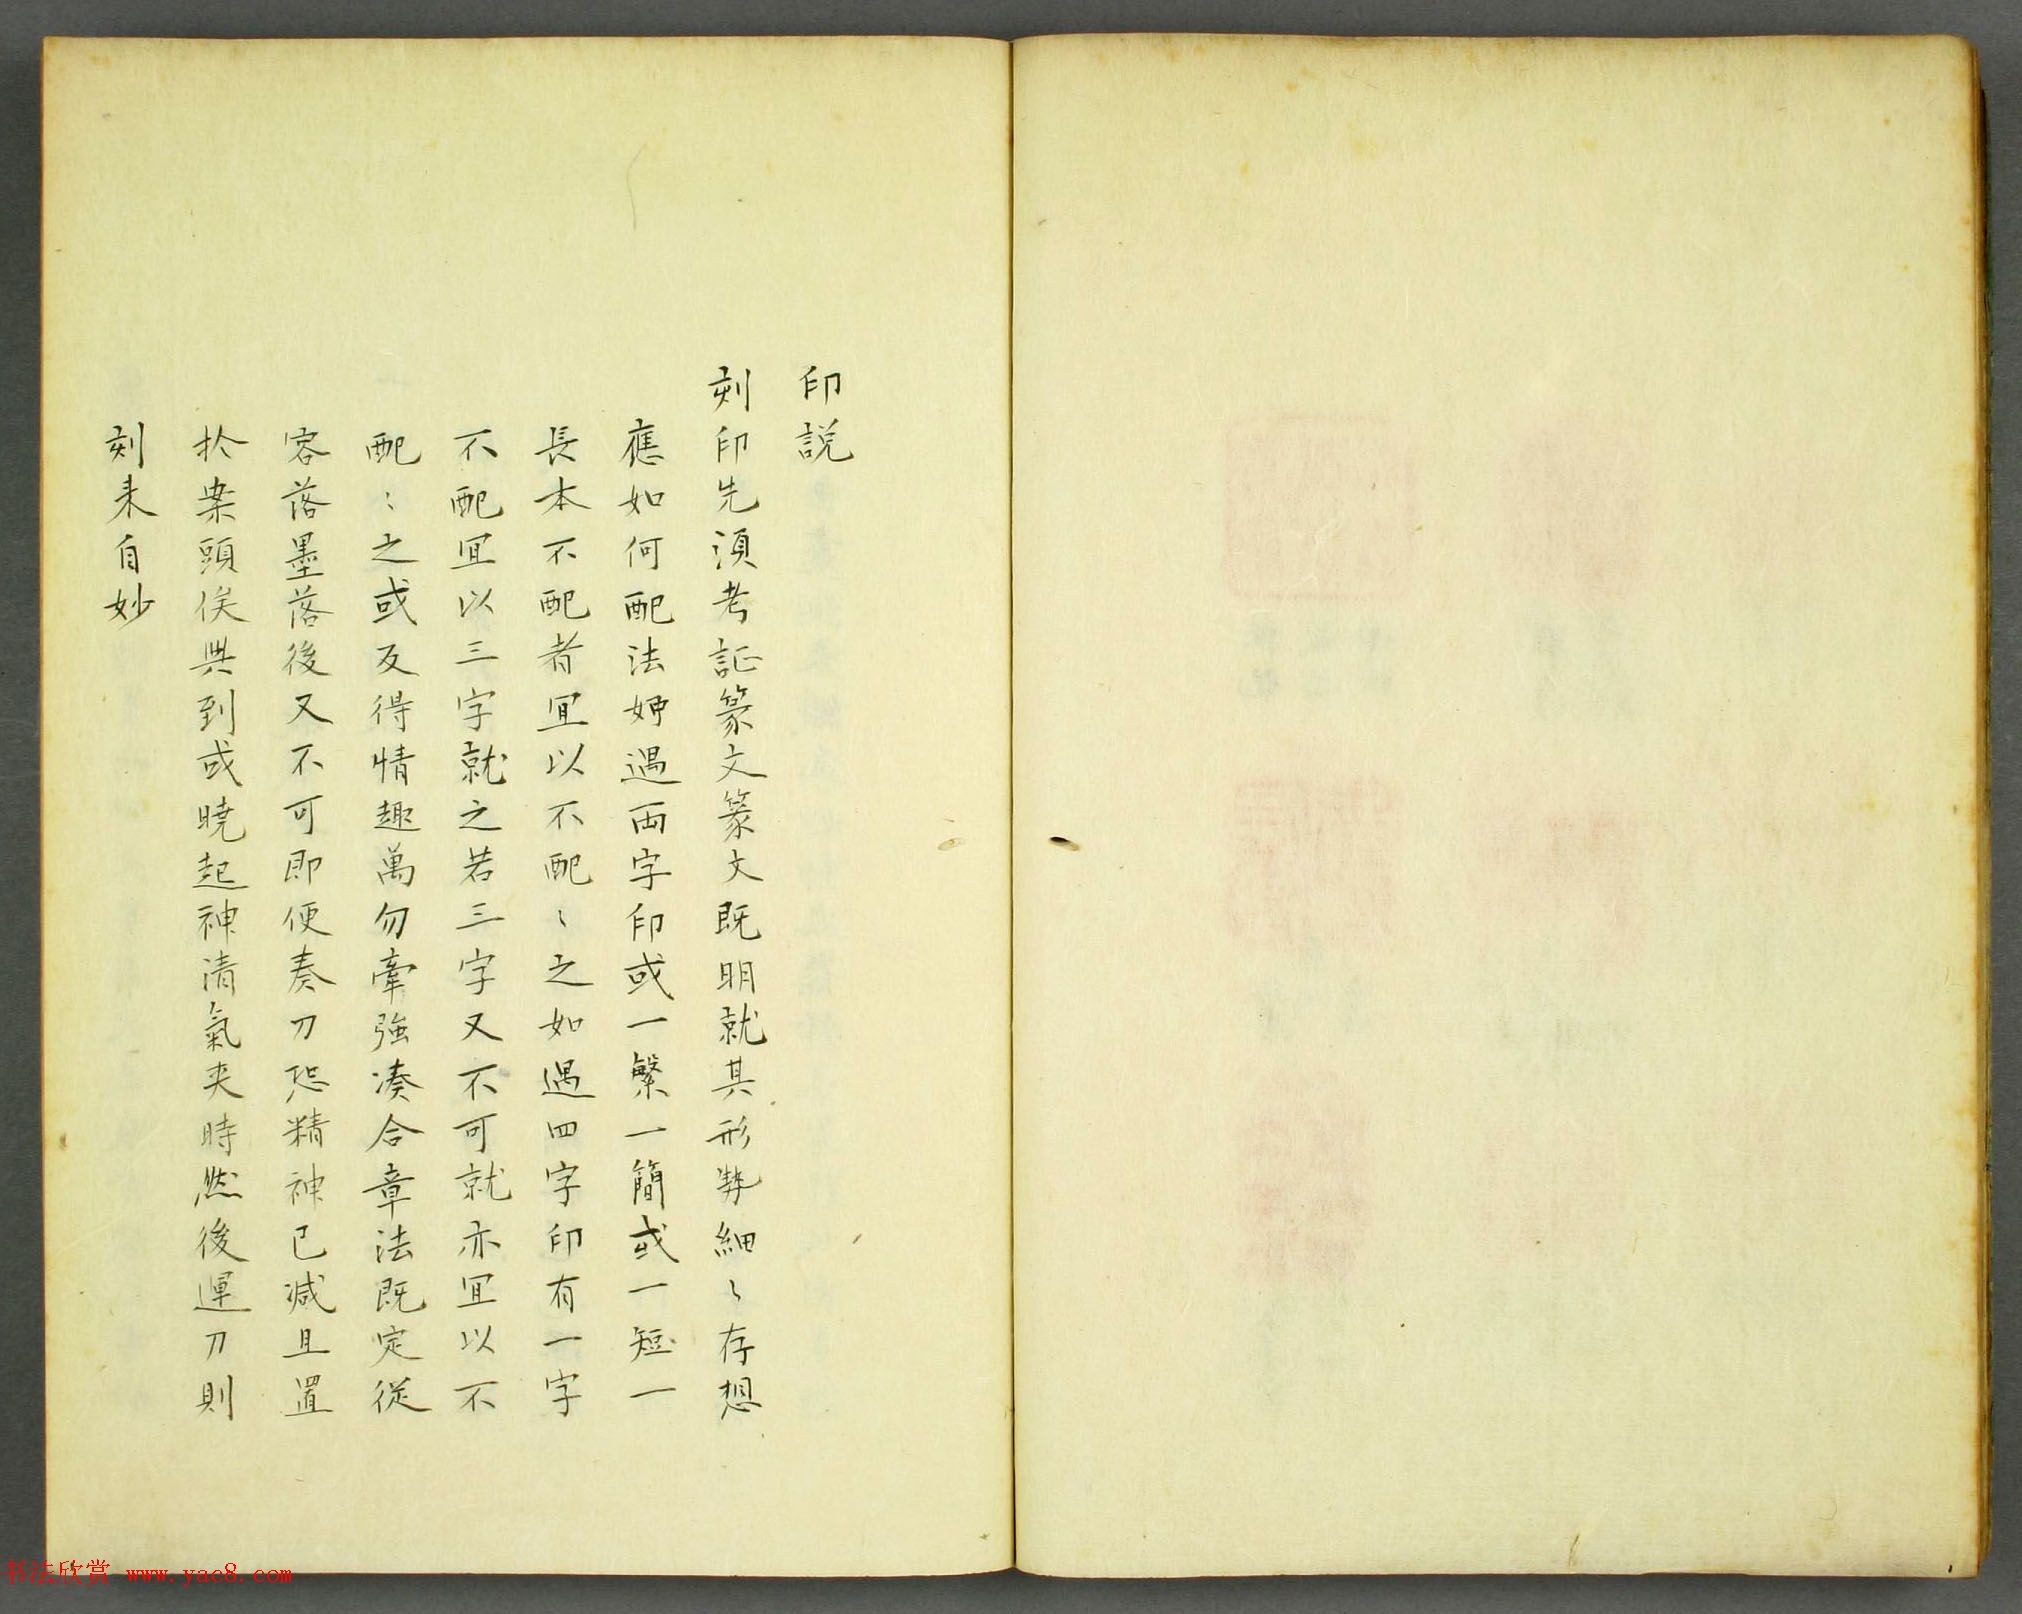 印説
刻印先湏考証篆文篆文既明就其形勢細〻存想
應如何配法如遇両字印或一繁一簡或一短一
長本不配者冝以不配〻之如遇四字印有一字
不配冝以三字就之若三字又不可就亦冝以不
配〻之或反得情趣萬勿牽強凑合章法既定從
容落墨落後又不可即便奏刀恐精神已减且置
扵案頭俟興到或曉起神清氣爽時然後運刀則
刻来自妙
书法欣赏 www.yac8.com